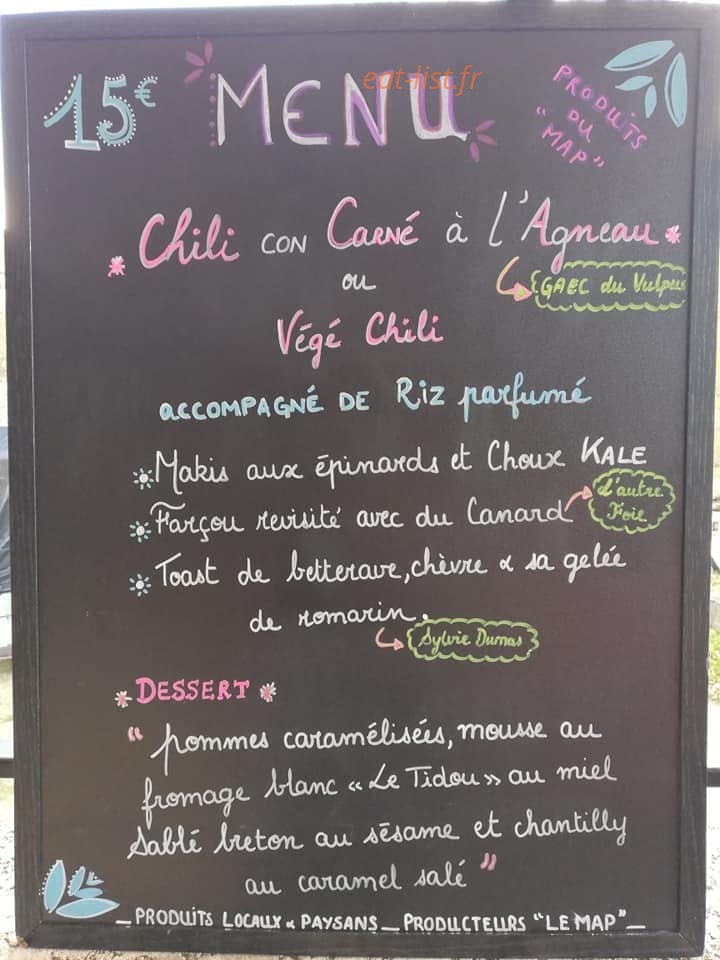 15€ MENU
eat-list.fr
PRODUITS
DU
"MAP"
Chili CON CARNÉ à l'Agneau
GAEC du Vulpeus
ou
Végé Chili
ACCOMPAGNÉ DE Riz parfumé
Makis aux épinards et Choux KALE
d'autre
Foie
Farçou revisité avec du Canard
Toast de betterave, chèvre & sa gelée
de romarin.
Sylvie Dumas
DESSERT
" pommes caramélisées, mousse au
fromage blanc « Le Tidou » au miel
Sablé breton au sésame et chantilly
au caramel salé "
_ PRODUITS LOCAUX & PAYSANS _ PRODUCTEURS "LE MAP" _